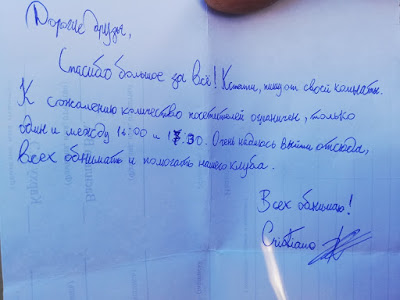 Дорогие друзья,
Спасибо большое за всё! Кстати, пишу от своей компаты.
К сожалению количество посетителей ограничен, только
один и между 16:00 и 17:30. Очень надеюсь выйти отсюда,
всех обнимать и помогать нашего клуба.
Всех обнимаю!
Cristiano